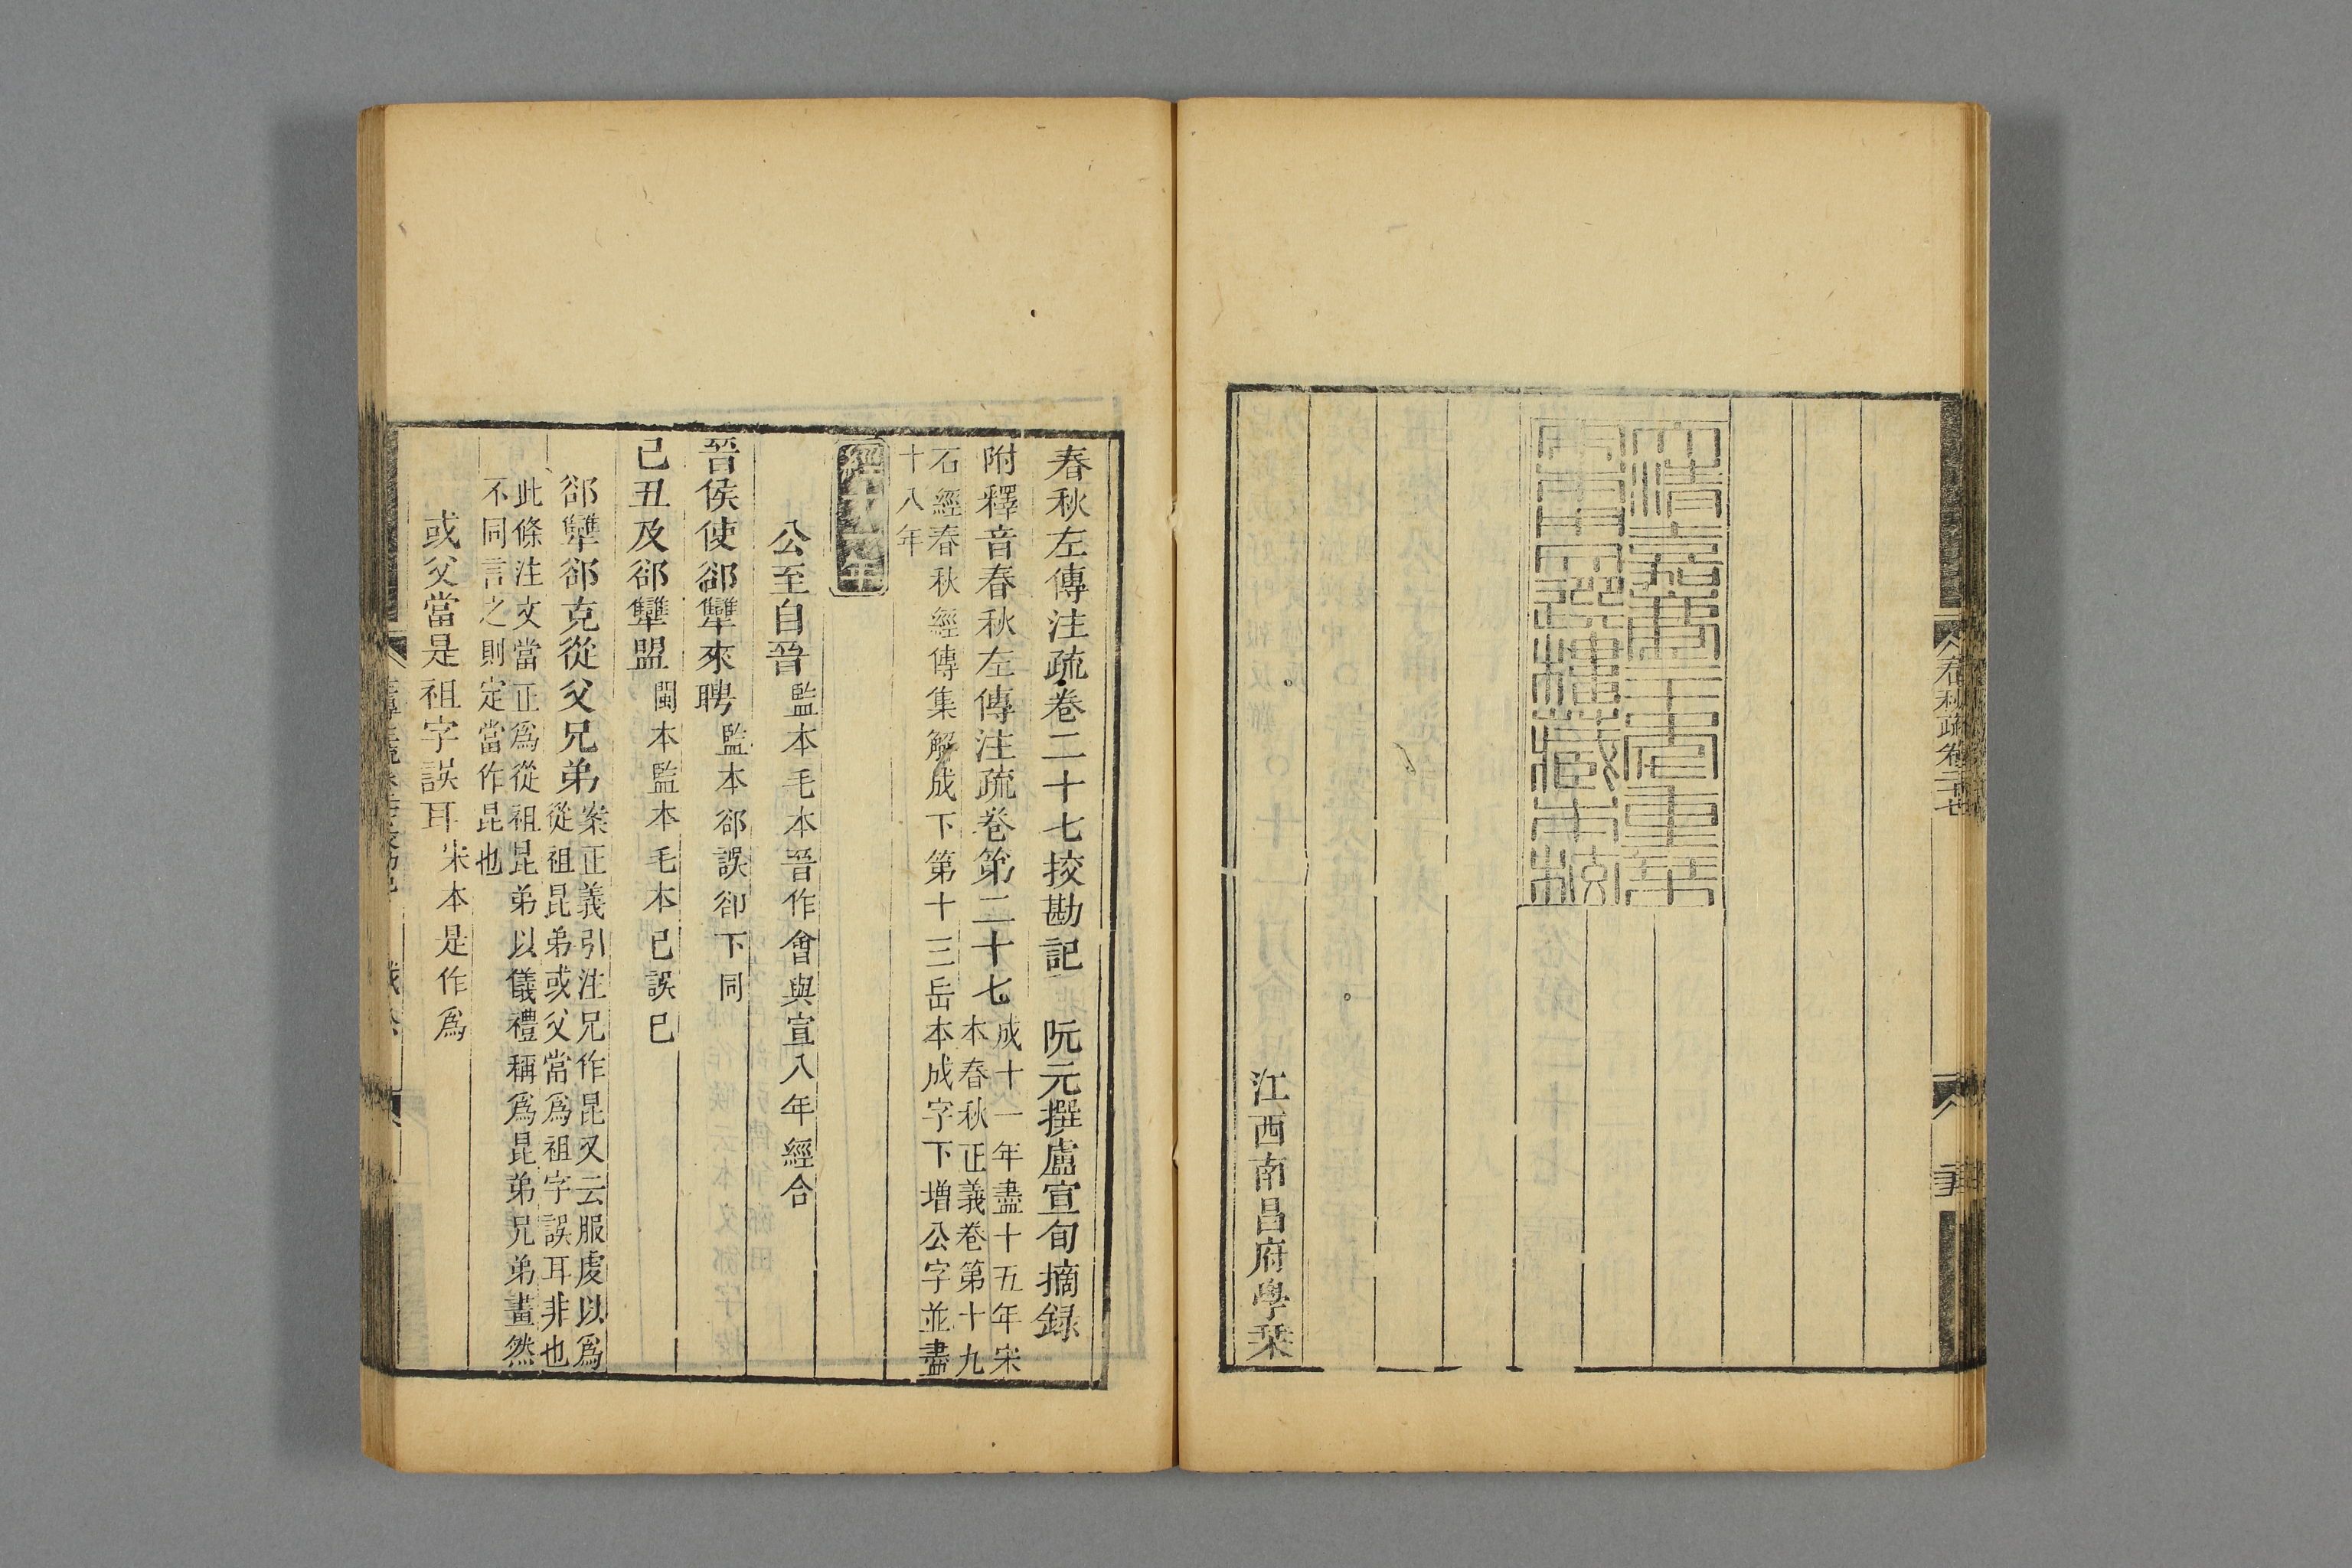 春秋疏卷二十七
大清嘉慶
選樓藏本
江西南昌府學栞
春秋左傳注疏卷二十七挍勘記 阮元撰盧宣旬摘録
附釋音春秋左傳注疏卷第二十七
成十一年盡十五年宋
本春秋正義卷第十九
石經春秋經傳集解成下第十三岳本成字下增公字並盡
十八年
公至自晉
監本毛本晉作會與宣八年經合
晉侯使郤犫來聘
監本郤誤卻下同
己丑及郤犫盟
閩本監本毛本已誤巳
郤犫郤克從父兄弟
案正義引注兄作昆又云服虔以爲
從祖昆弟或父當爲祖字誤耳非也
此條注文當正爲從祖昆弟以儀禮稱爲昆弟兄弟畫然
不同言之則定當作昆也
或父當是祖字誤耳
宋本是作爲